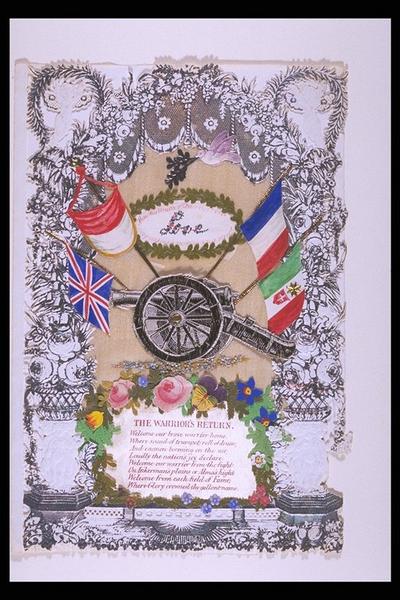 Love
THE WARRIOR'S RETURN.
Welcome our brave warrior home,
Where sound of trumpet, roll of drum,
And cannon booming on the air
Loudly the nation's joy declare.
Welcome our warrior from the fight
On Inkerman's plains or Alma's height
Welcome from each field of Fame,
Where Glory crowned the gallant name.